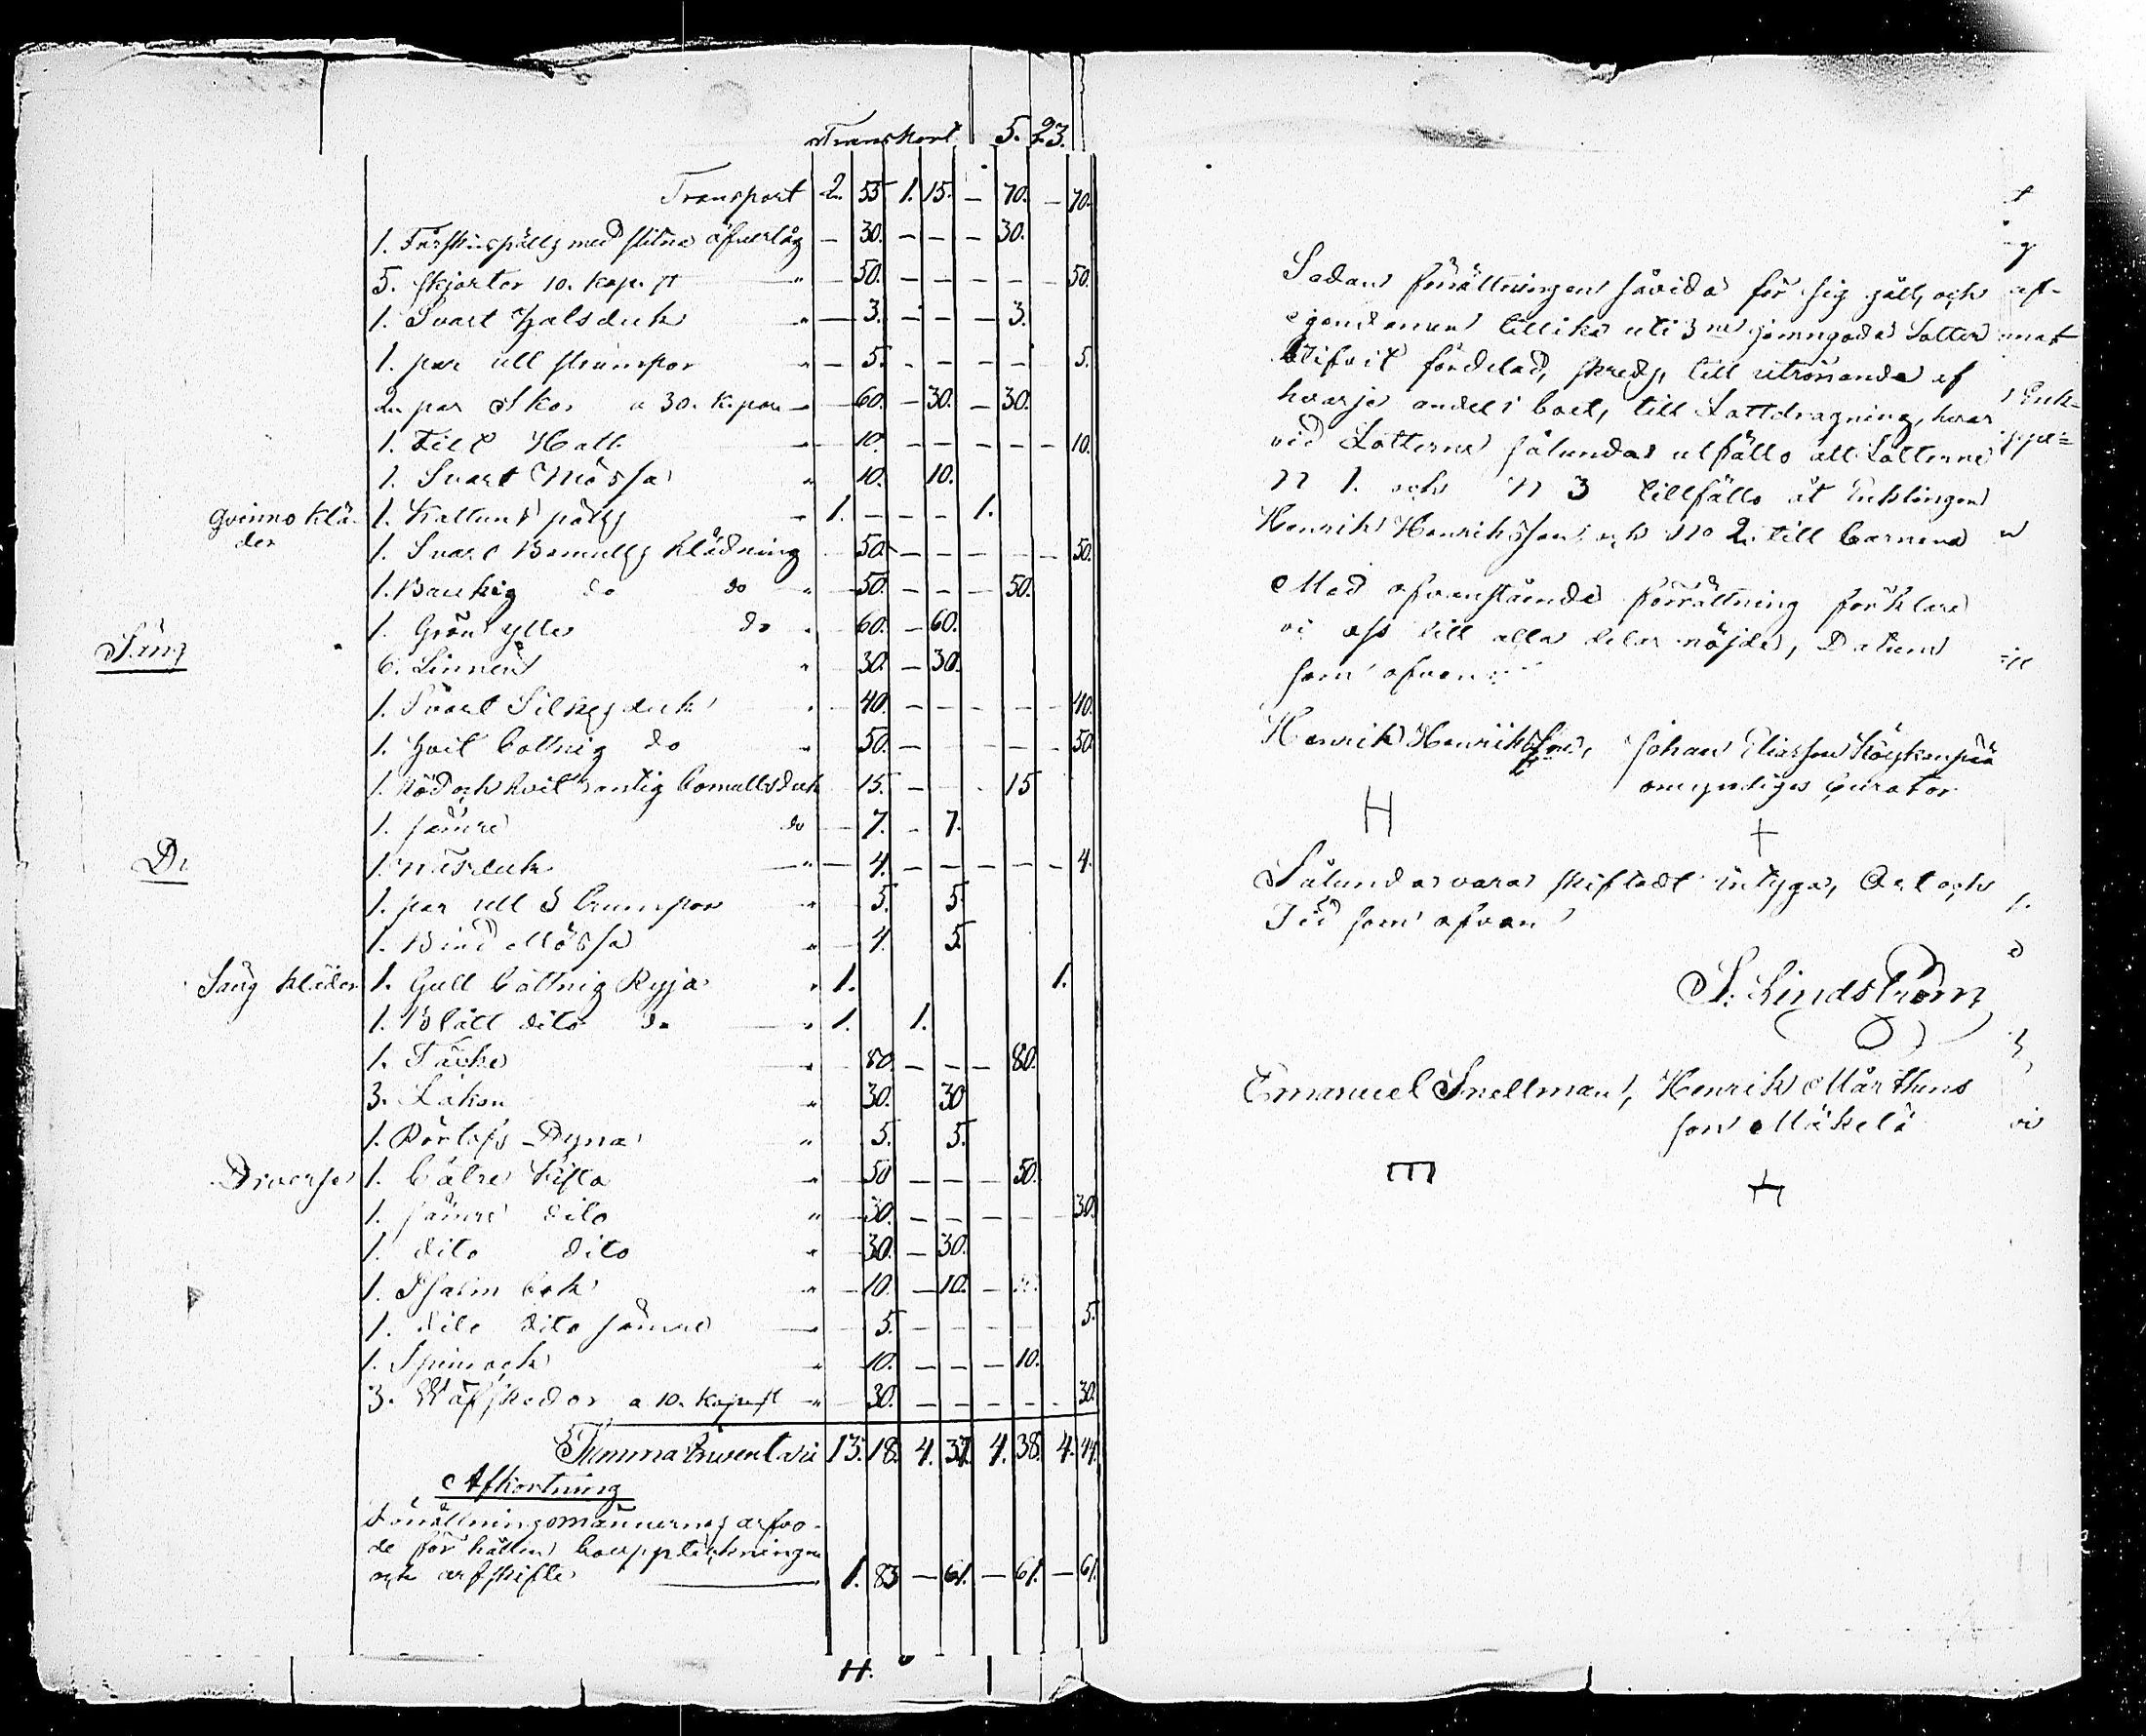 Transport 5. 23.
Transport 2. 55 1. 15. — 70. — 70.
1. Fårskinspälls med slitna öfverlåg — 30. — — — 30.
5. skjortor 10. kop. st " 50. — — — — — 50.
1. Svart Halsduk " — 3. — — — 3.
1. par ull strumpor " — 5. — — — — 5.
2. par Skor a 30. K. par — 60. — 30. — 30.
1. Filt Hatt — 10. — — — — — 10.
1. Svart Mössa " 10. 10.
Qvinno klä-
der
1. Kattuns pälts " 1. — — — 1.
1. Svart Bomulls klädning 50. — — — — — 50.
1. Baukig do do " 50. — — — 50.
1. Grön ylle do " 60. — 60.
Säng
6. Linnen " 30. — 30.
1. Svart Silkes duk " 40. — — — — — 40.
1. Hvit bottnig do " 50. — — — — 50
1. Röd och hvit rantig bomullsduk 15. — 15
1. sämre do 7. — 7.
Di
1. Näsduk " — 4. — — — — — 4.
1. par ull Strumpor " 5. 5.
1. Bind Mössa " 4. 5.
Säng kläder 1. Gull bottnig Ryja " 1. 1.
1. Blått dito do " 1. 1.
1. Täcke 80. — — — 80.
3. Lakan " 30. 30
1. Örlafs Dyna " 5. 5.
Diverse 1. bätre kista " 50 — — — 50.
1. sämre dito " 30. — — — — 30.
1. dito dito " 30. — 30.
1. Psalm bok " — 10. — 10. —
1. dito dito sämre — 5. — — — — 5.
1. Spinrock " 10. — — — 10.
3. Wäfskedor a 10. kop. st " 30. — — — — — 30.
Summa Inventarii 13. 18. 4. 37. 4. 38. 4. 44.
Afkortning
Förrättningsmännernas arfvo-
de för hållen bouppteckningen
och arfskifte 1. 83 — 61. — 61. — 61.
H.
Sedan förrättningen såvida för sig gått, och
egendomen tillika uti 3ne jemngoda Lotter
blifvit fördelad, skreds, till utrönande af
hvarje andel i boet, till Lottdragning, hvar
vid Lotterne sålunda utfällo att Lotterne
N 1. och N 3 tillfällo åt Enklingen
Henrik Henriksson och No 2. till barnena
Med ofvanstående förrättning förklara
vi oss till alla delar nöjda, Datum
som ofvan
Henrik Henriksson, Johan Eliasson Köykänpää
omyndiges Curator
H +
Sålunda vara skiftadt intyga, Ort och
Tid som ofvan
S. Lindström
Emanuel Snellman, Henrik Mårthens
son Mäkelä